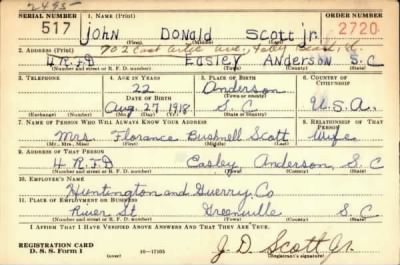 2495
SERIAL NUMBER 1. NAME (Print) ORDER NUMBER
517 John Donald Scott jr. 2720
(First) (Middle) (Last)
2. ADDRESS (Print) 702 East Ave.,
4 R.F.D Easley Anderson S.C
(Number and street or R. F. D. number) (Town) (County) (State)
3. TELEPHONE 4. AGE IN YEARS 5. PLACE OF BIRTH 6. COUNTRY OF CITIZENSHIP
22 Anderson
DATE OF BIRTH (Town or county)
Aug. 27, 1918. S.C U.S.A.
(Exchange) (Number) (Mo.) (Day) (Yr.) (State or country)
7. NAME OF PERSON WHO WILL ALWAYS KNOW YOUR ADDRESS 8. RELATIONSHIP OF THAT PERSON
Mrs. Florance Bushnell Scott Wife
(Mr., Mrs., Miss) (First) (Middle) (Last)
9. ADDRESS OF THAT PERSON
4 R.F.D Easley, Anderson, S.C
(Number and street or R. F. D. number) (Town) (County) (State)
10. EMPLOYER'S NAME
Huntington and Guerry, Co
11. PLACE OF EMPLOYMENT OR BUSINESS
River St. Greenville S.C
(Number and street or R. F. D. number) (Town) (County) (State)
I AFFIRM THAT I HAVE VERIFIED ABOVE ANSWERS AND THAT THEY ARE TRUE.
REGISTRATION CARD
D. S. S. Form 1 (over) 16-17105 J. D. Scott Jr.
(Registrant's signature)